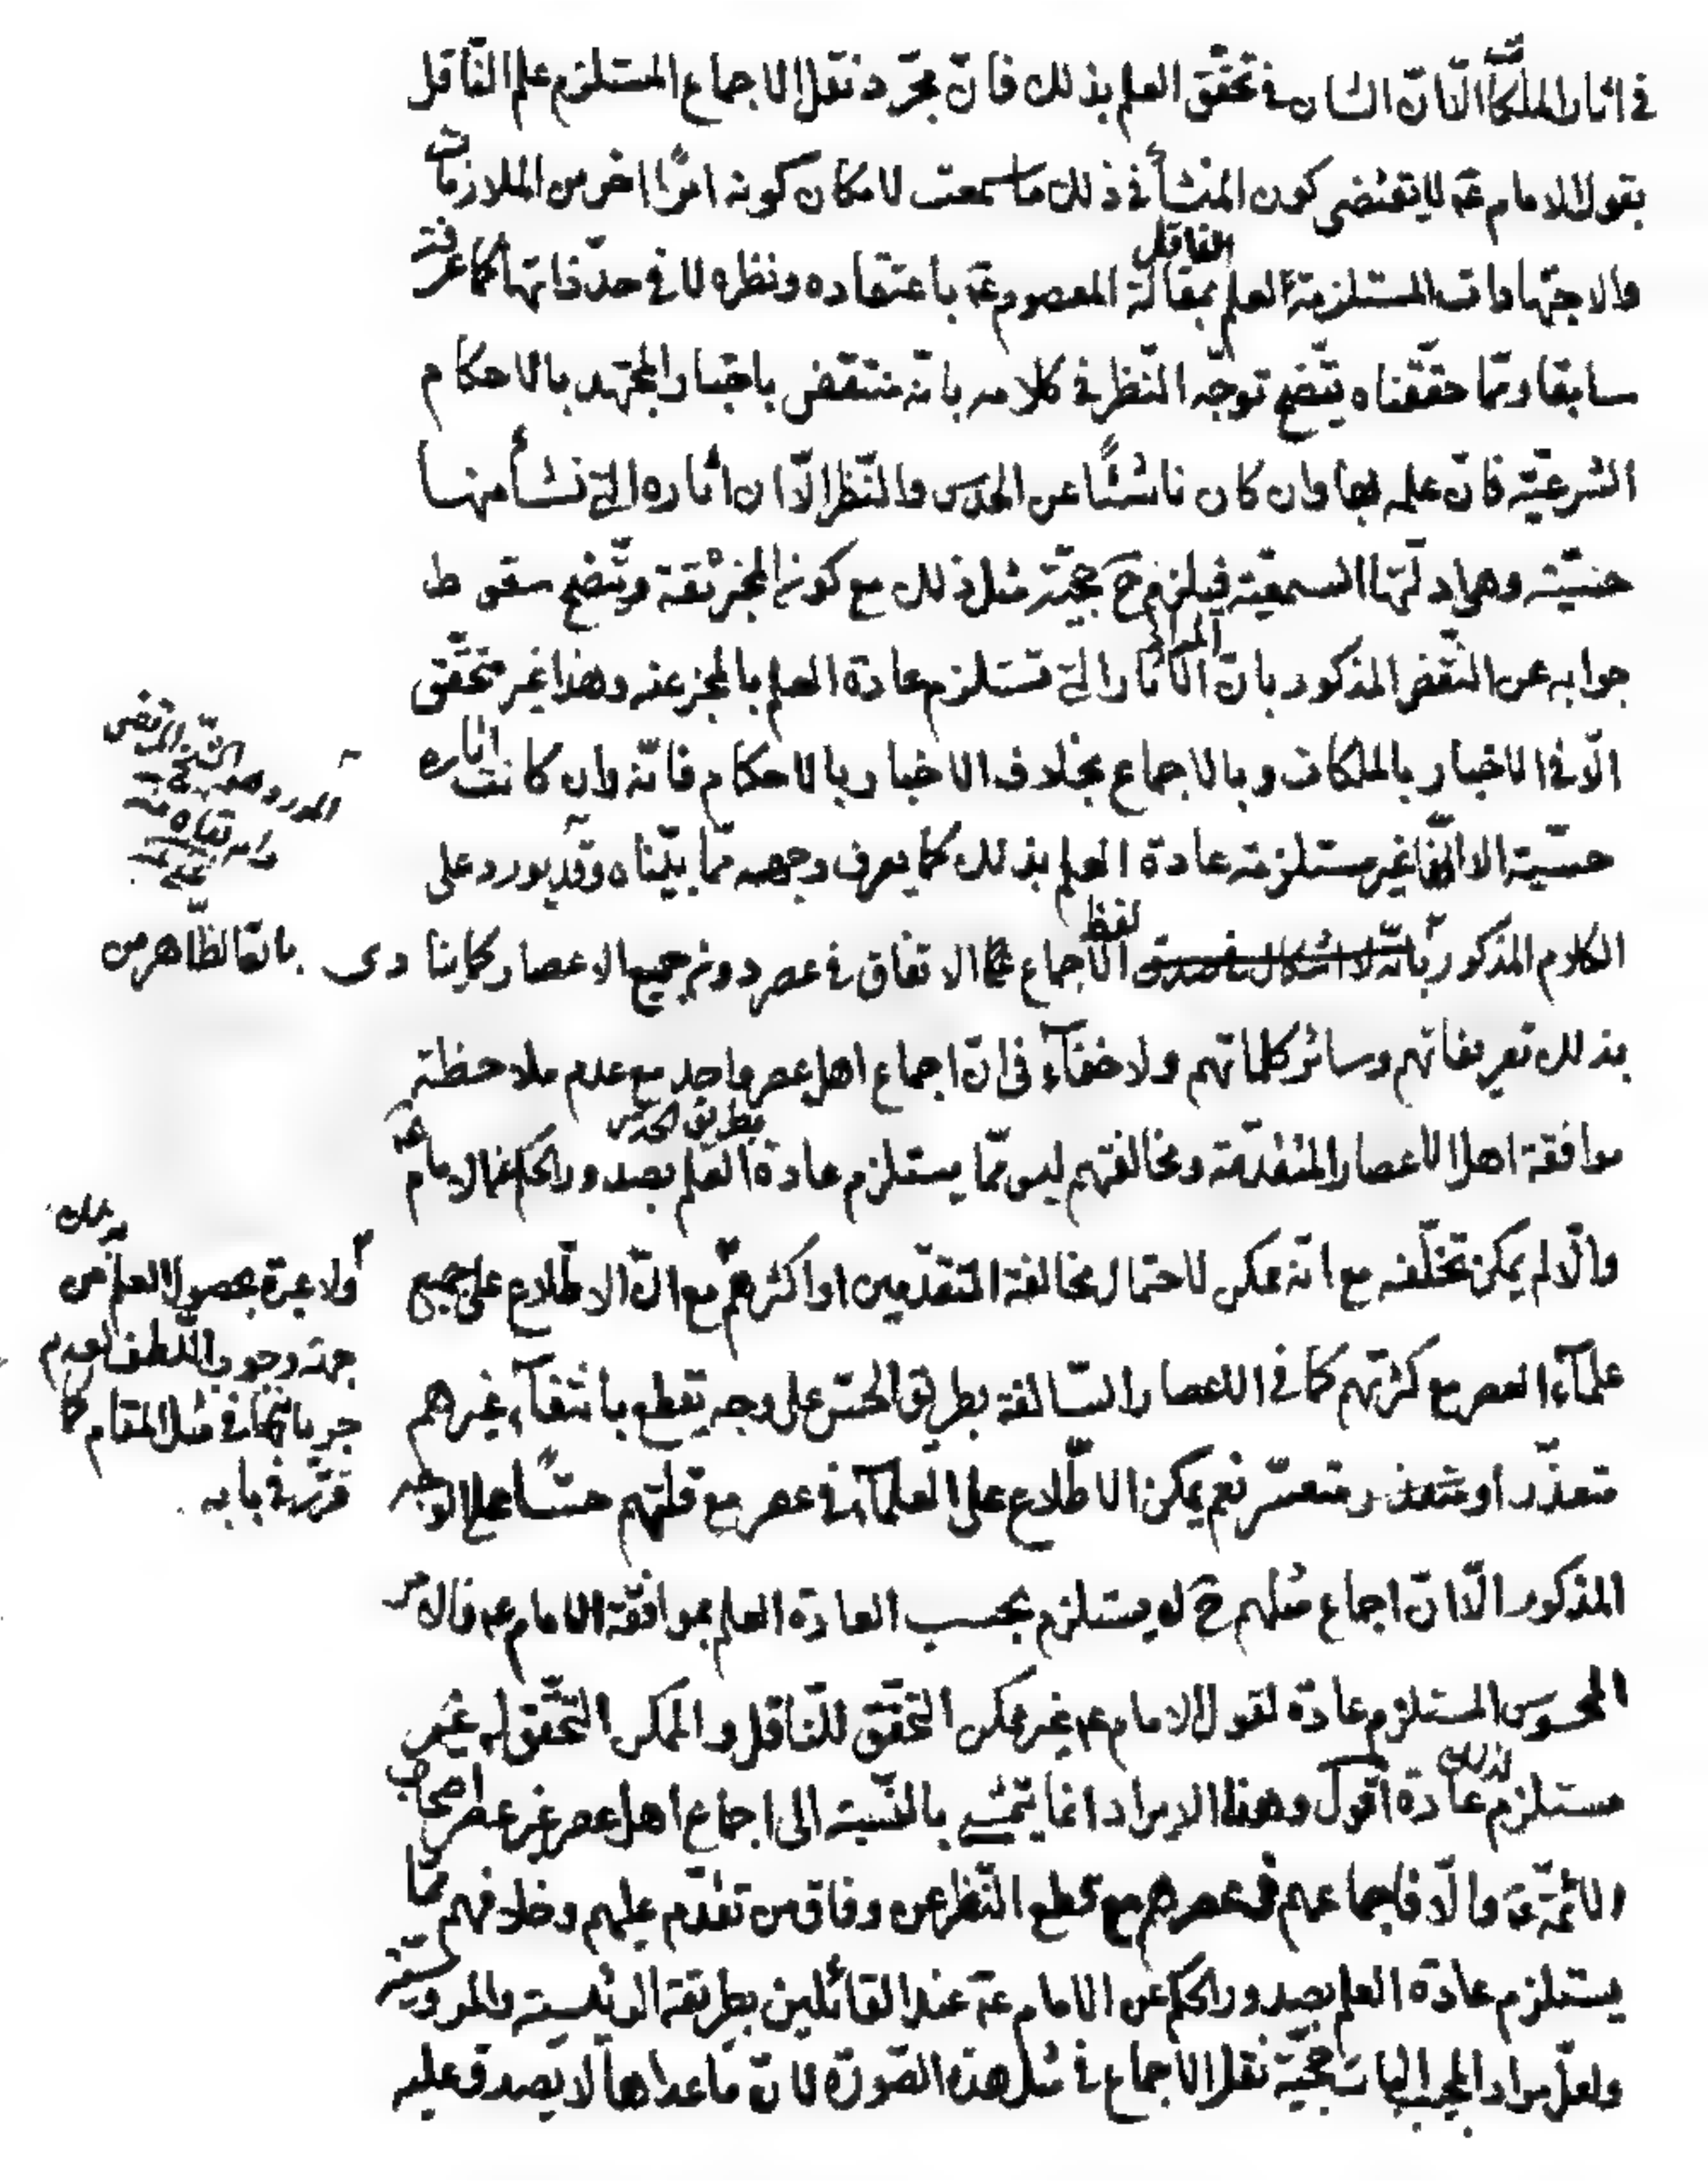 في اثار الملكات الّا انّ الشان في تحقّق العلم بذلك فانّ مجرّد نقل الاجماع المستلزم علم النّاقل
بقول الامام عم لا يقتضى كون المنشأ في ذلك ما سمعت لامكان كونه امرًا اخر من الملازمات
والاجتهادات المستلزمة لعلم الناقل بمقالة المعصوم عم باعتقاده ونظره لا في حدّ ذاتها كما عرفته
سابقا وممّا حقّقناه يتّضح توجّه النّظر في كلامه بانّه منتقض باخبار المجتهد بالاحكام
الشرعيّة فانّ علمه بها وان كان ناشئًا عن الحدس والنّظر الّا ان اثاره الّتي نشأ منها
حسّيّة وهي ادلّتها السمعيّة فيلزم ح حجيّة مثل ذلك مع كون المخبر ثقة ويتّضح سقوط
جوابه عن النّقض المذكور بانّ المراد الاثار الّتي تستلزم عادة العلم بالمخبر عنه وهذا غير متحقّق
الّا في الاخبار بالملكات وبالاجماع بخلاف الاخبار بالاحكام فانّه وان كانت اثاره
حسّيّة الا انّها غير مستلزمة عادة العلم بذلك كما يعرف وجهه ممّا بيّنّاه وقد يورد على
المورد هو
التقى المرتضى
الكلام المذكور بانّه لا اشكال في صدق لفظ الاجماع على الاتفاق في عصر دون جميع الاعصار كما ينادى بانّها الظّاهر من
بذلك تعريفاتهم وسائر كلماتهم ولا خفآء في انّ اجماع اهل عصر واحد مع عدم ملاحظة
موافقة اهل الاعصار المتقدّمة ومخالفتهم ليس ممّا يستلزم عادة العلم بطريق الحدس بصدور الحكم عن الامام عم
والّا لم يمكن تخلّفه مع انّه ممكن لاحتمال مخالفة المتقدّمين او اكثرهم مع انّ الاطّلاع على جميع
ولا عبرة بحصول العلم بذلك من
جهة وجوب اللّطف لعدم
جريانها في مثل المقام كما
قرّر في بابه
علمآء العصر مع كثرتهم كما في الاعصار السّالفة بطريق الحسّ على وجه يقطع بانتفآء غيرهم
متعذّر او متعسّر نعم يمكن الاطّلاع على العلمآء في عصر مع قلّتهم حسًّا على الوجه
المذكور الّا انّ اجماع مثلهم ح لا يستلزم بحسب العادة العلم بموافقة الامام عم فالامر
المحسوس المستلزم عادة لقول الامام عم غير ممكن التّحقّق للنّاقل والممكن التّحقّق له غير
مستلزم لذلك عادة اقول وهذا الايراد انما يتمشّى بالنّسبة الى اجماع اهل عصر غير عصر اصحاب
الائمّة عم والّا فاجماعهم في عصرهم مع قطع النّظر عن وفاق من تقدّم عليهم وخلافهم ممّا
يستلزم عادة العلم بصدور الحكم عن الامام عم عند القائلين بطريقة الرئيسيّة والمرؤسيّة
ولعلّ مراد المجيب اثبات حجيّة نقل الاجماع في مثل هذه الصّورة لانّ ما عداها لا يصدق عليه